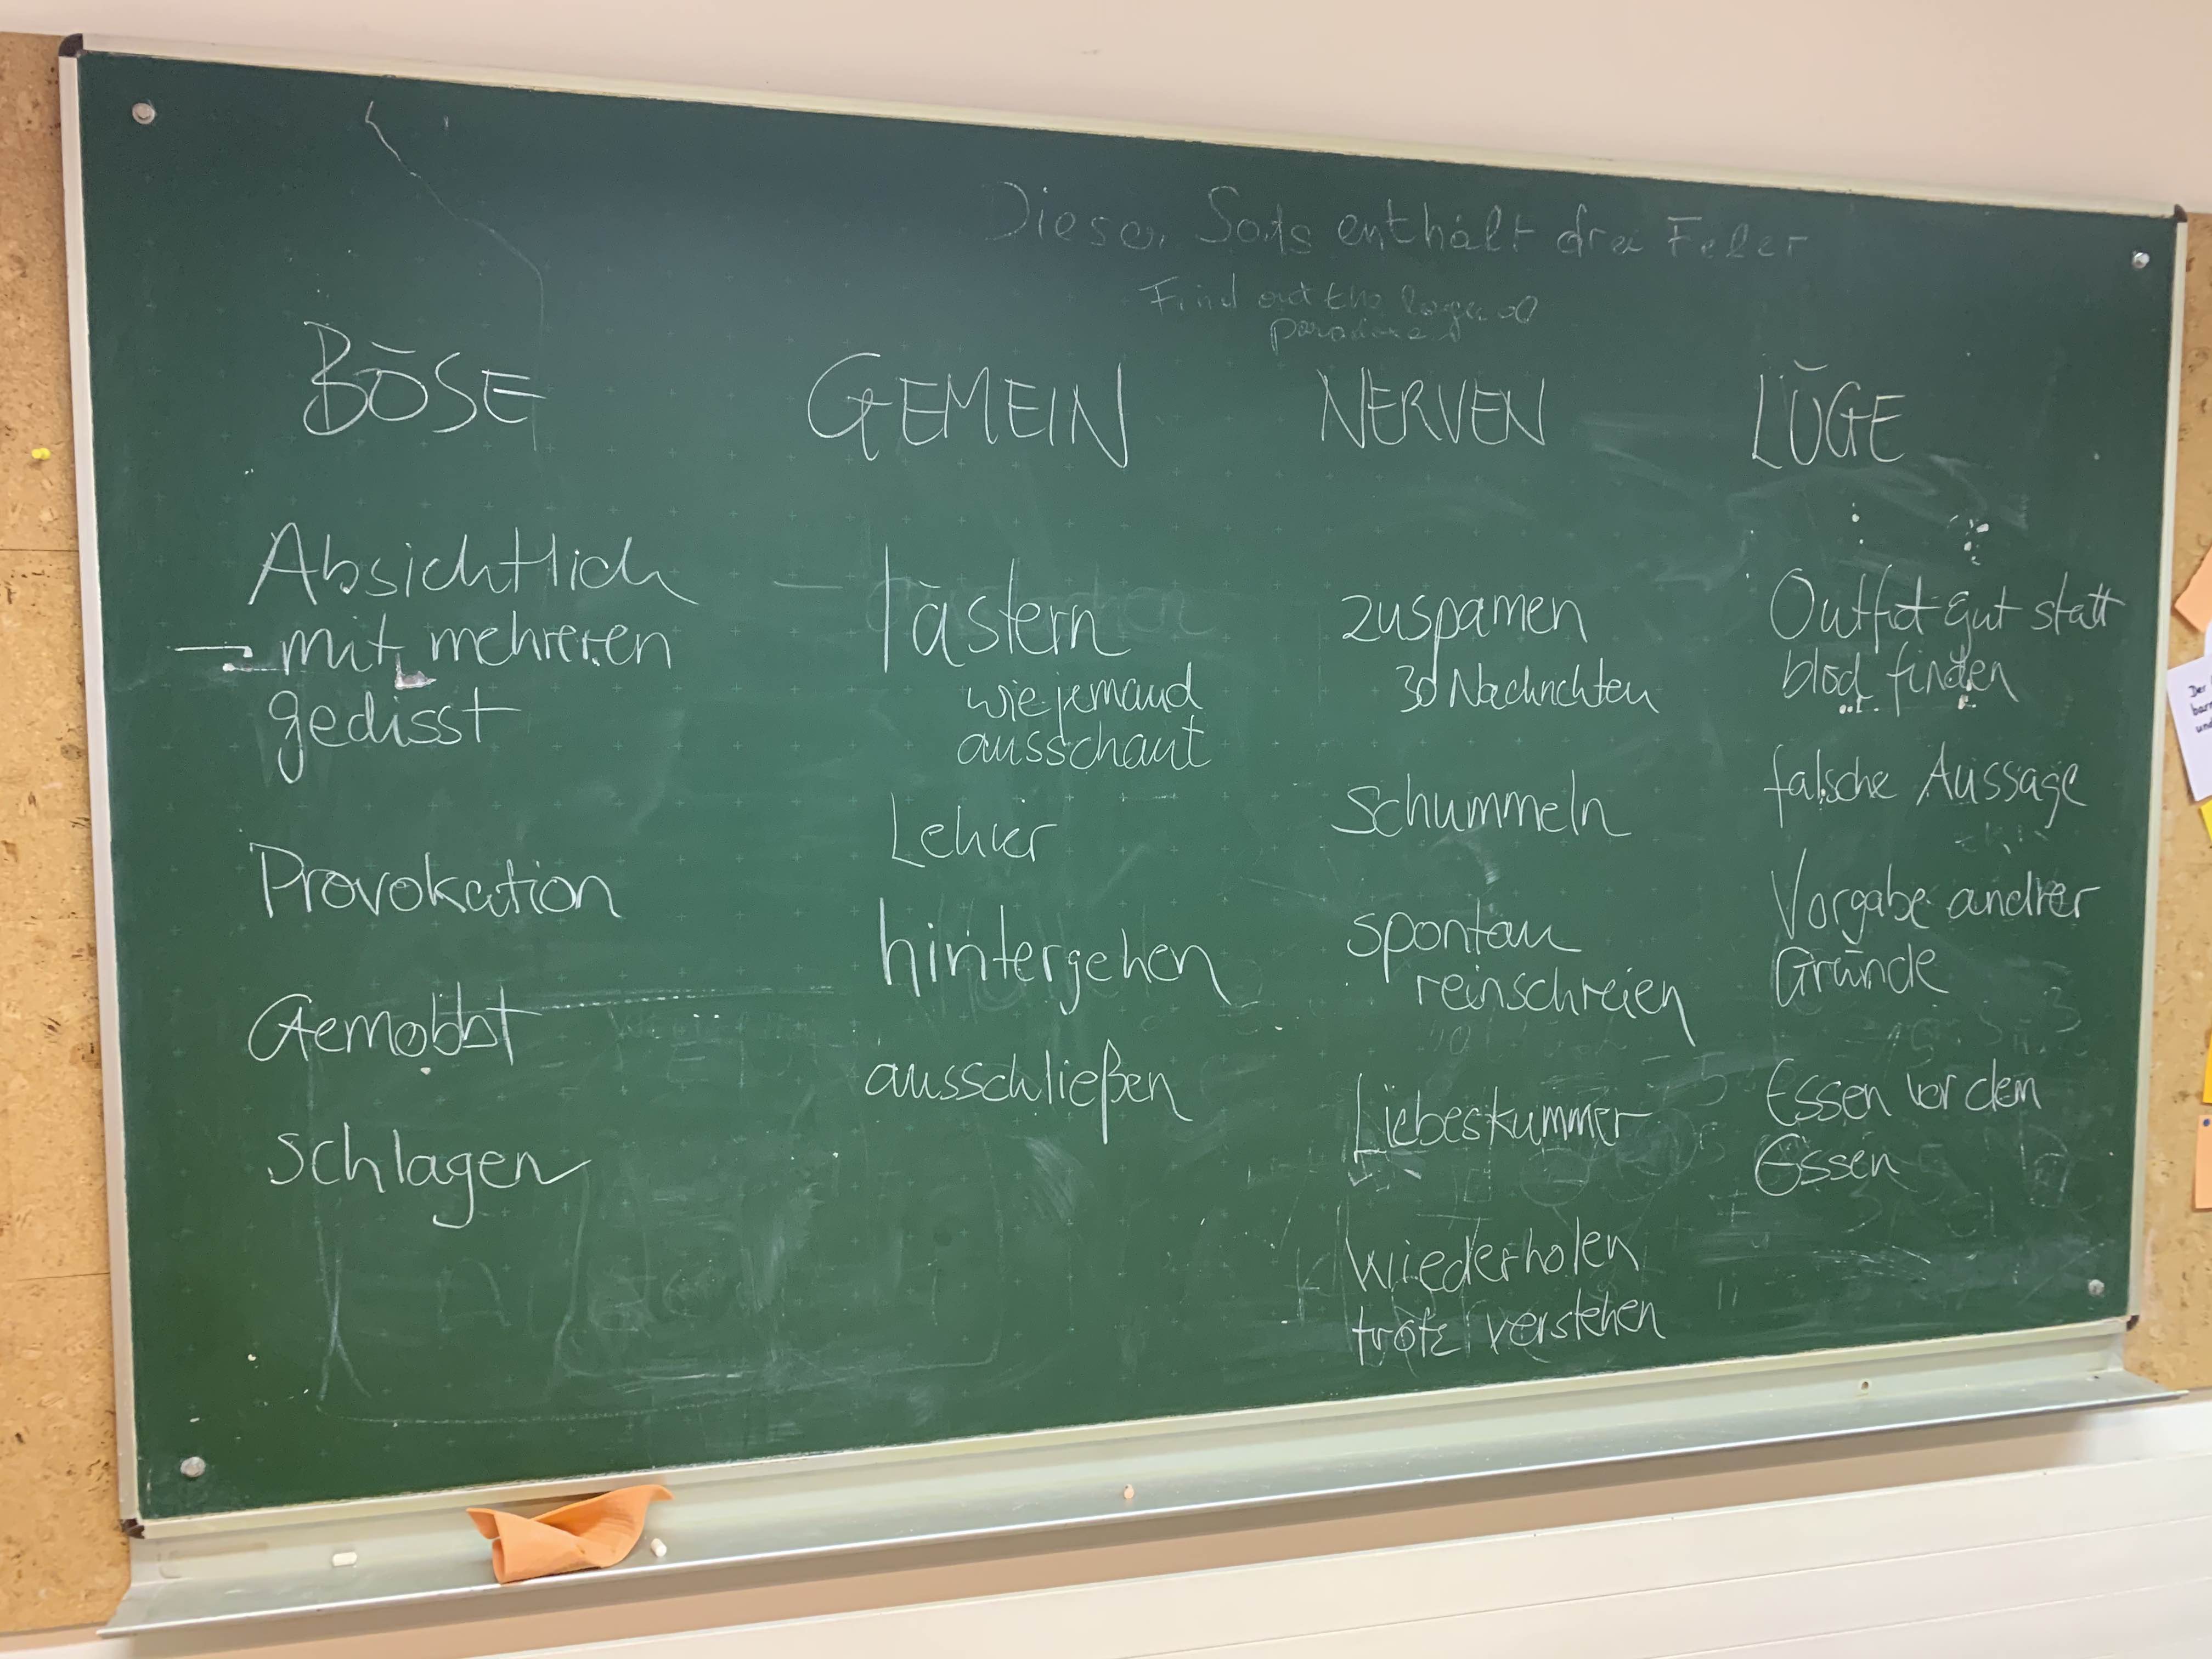 Dieser Sats enthält drei Feler
Find out the logical
BÖSE
Absichtlich
mit mehreren
gedisst
Provokation
Gemobbt
schlagen
GEMEIN
lästern
wie jemand
ausschaut
Lehrer
hintergehen
ausschließen
NERVEN
zuspamen
30 Nachrichten
Schummeln
spontan
reinschreien
Liebeskummer
wiederholen
trotz verstehen
LÜGE
Outfit gut statt
blöd finden
falsche Aussage
Vorgabe andrer
Gründe
Essen vor dem
Essen
Der